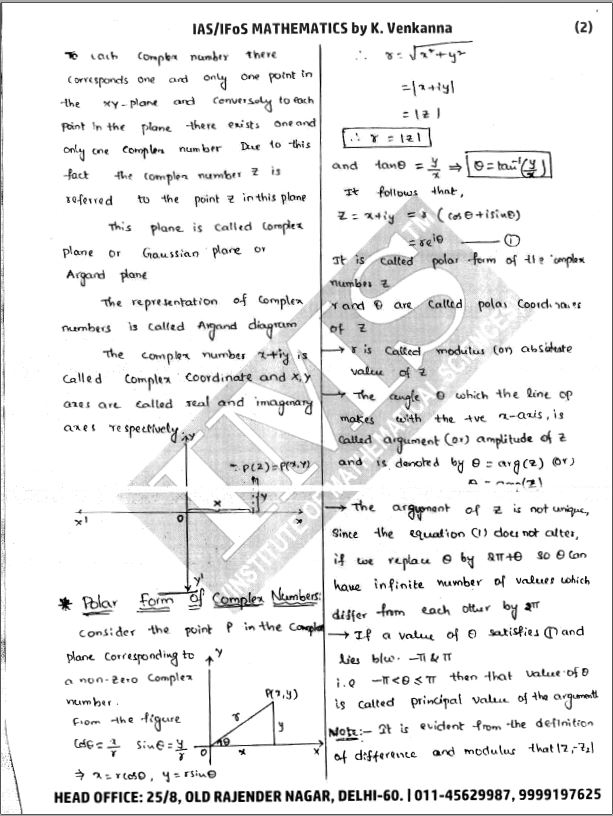 IAS/IFoS MATHEMATICS by K. Venkanna
(2)
To each Complex number there
Corresponds one and only one point in
the xy-plane and Conversely to each
Point in the plane there exists one and
only one Complex number Due to this
fact the complex number z is
referred to the point z in this plane
This plane is called Complex
plane or Gaussian plane or
Argand plane
The representation of Complex
numbers is called Argand diagram
The complex number x+iy is
called Complex Coordinate and x,y
axes are called real and imaginary
axes respectively.
y
P(z)=P(x,y)
x
y
x'
O
x
y'
* Polar Form of Complex Numbers:
Consider the point P in the Complex
plane Corresponding to
a non-zero Complex
number.
From the figure
Cosθ = x/r Sinθ = y/r
⇒ x = r cosθ, y = r sinθ
y
P(x,y)
r
y
θ
O
x
x
∴ r = √x²+y²
= |x+iy|
= |z|
∴ r = |z|
and tanθ = y/x ⇒ θ = tan⁻¹(y/x)
It follows that,
z = x+iy = r (cosθ+isinθ)
= re^iθ — (1)
It is called polar form of the complex
number z
r and θ are Called polar Coordinates
of z
→ r is Called modulus (or) absolute
value of z
→ The angle θ which the line op
makes with the +ve x-axis, is
called argument (or) amplitude of z
and is denoted by θ = arg(z) (or)
θ = amp(z)
→ The argument of z is not unique,
Since the equation (1) does not alter,
if we replace θ by 2π+θ so θ Can
have infinite number of values which
differ from each other by 2π
→ If a value of θ satisfies (1) and
lies b/w. -π & π
i.e -π<θ≤π then that value of θ
is called principal value of the argument
Note:- It is evident from the definition
of difference and modulus that |z₁-z₂|
IMS
TM
INSTITUTE OF MATHEMATICAL SCIENCES
HEAD OFFICE: 25/8, OLD RAJENDER NAGAR, DELHI-60. | 011-45629987, 9999197625